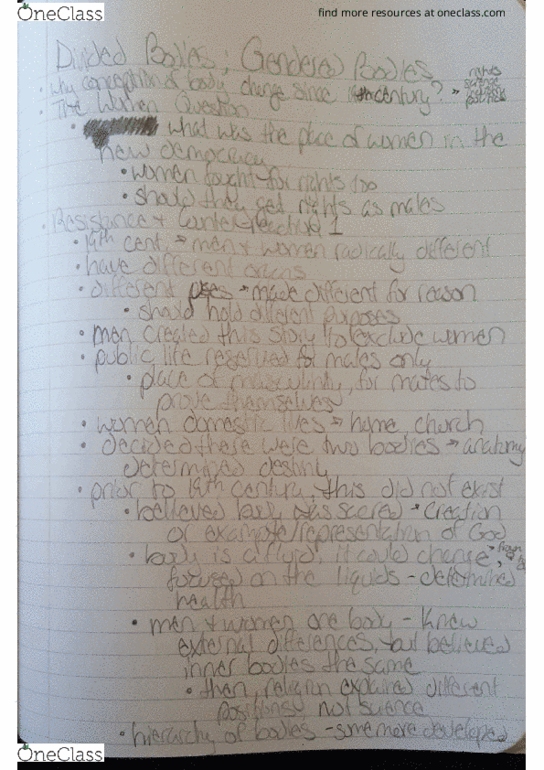 OneClass
find more resources at oneclass.com
Divided Bodies; Gendered Bodies
• why conception of body change since 18th century? →
rights
science
• The Women Question
• what was the place of women in the
new democracy
• women fought for rights too
• should they get rights as males
• Resistance + Counter-reactive 1
• 19th cent. → men + women radically different
• have different origins
• different uses → made different for reason
• should hold different purposes
• men created this story to exclude women
• public life reserved for males only
• place of masculinity, for males to
prove themselves
• women domestic lives → home, church
• decided there were two bodies → anatomy
determined destiny
• prior to 19th century, this did not exist
• believed body was sacred → creation
or example/representation of God
• body is a fluid, it could change,
focused on the liquids - determined
health
• men + women one body - knew
external differences, but believed
inner bodies the same
• then, religion explained different
positions, not science
• hierarchy of bodies - some more developed
OneClass